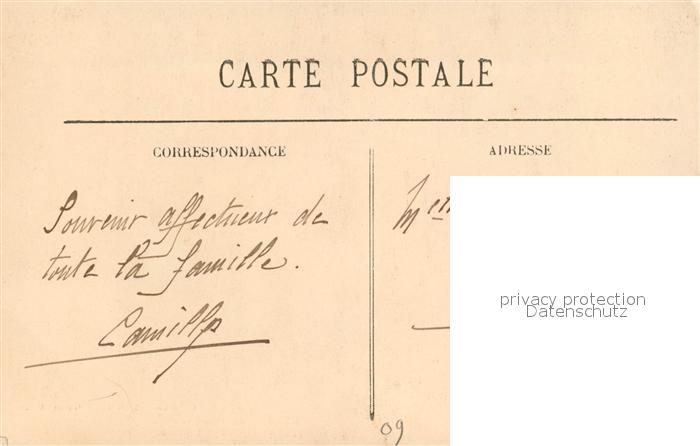 CARTE POSTALE
CORRESPONDANCE
ADRESSE
Souvenir affectueux de
toute la famille.
Camille
privacy protection
Datenschutz
09